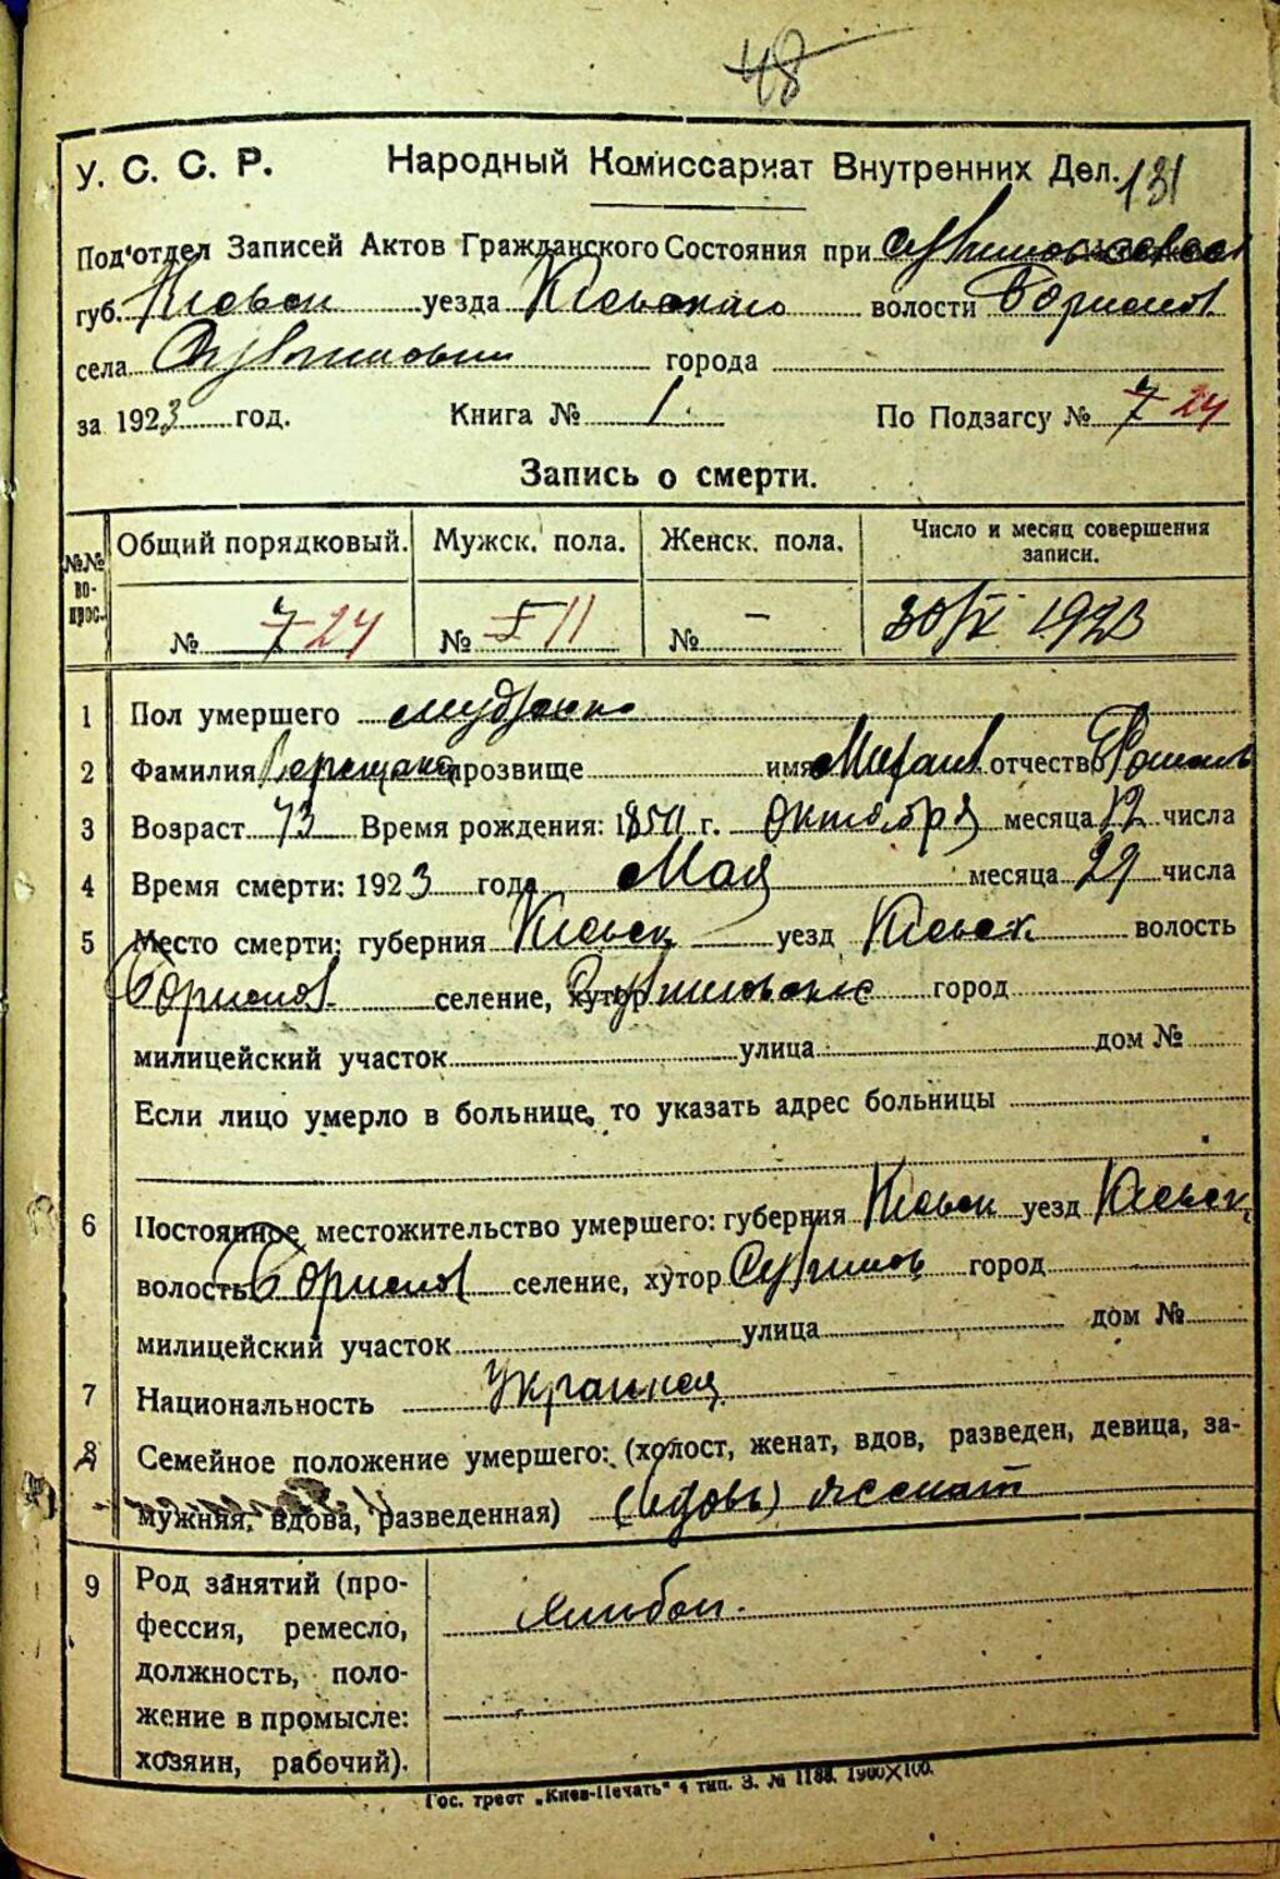 48
У. С. С. Р. Народный Комиссариат Внутренних Дел. 131
Под'отдел Записей Актов Гражданского Состояния при
губ. Киевск уезда Киевского волости Бориспол
села города
за 1923 год. Книга № 1. По Подзагсу № 7 24
Запись о смерти.
№№ вопрос. Общий порядковый. Мужск. пола. Женск. пола. Число и месяц совершения записи.
№ 7 24 № 5 11 № – 30/V 1923
1 Пол умершего
2 Фамилия Верещака прозвище имя отчество Роман
3 Возраст 73 Время рождения: 1850 г. Октября месяца 12 числа
4 Время смерти: 1923 года Мая месяца 29 числа
5 Место смерти: губерния Киевск уезд Киевск волость
Бориспол селение, хутор город
милицейский участок улица дом №
Если лицо умерло в больнице, то указать адрес больницы
6 Постоянное местожительство умершего: губерния Киевск уезд Киевск
волость Бориспол селение, хутор город
милицейский участок улица дом №
7 Национальность Украинец
8 Семейное положение умершего: (холост, женат, вдов, разведен, девица, за-
мужняя, вдова, разведенная) (вдовь) женат
9 Род занятий (про-
фессия, ремесло, хлебоп.
должность, поло-
жение в промысле:
хозяин, рабочий).
Гос. трест „Киев-Печать" 4 тип. З. № 1188. 1900×100.